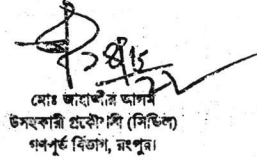 মোঃ জাহাঙ্গীর আলম
উপসহকারী প্রকৌশলী (সিভিল)
গণপূর্ত বিভাগ, রংপুর।